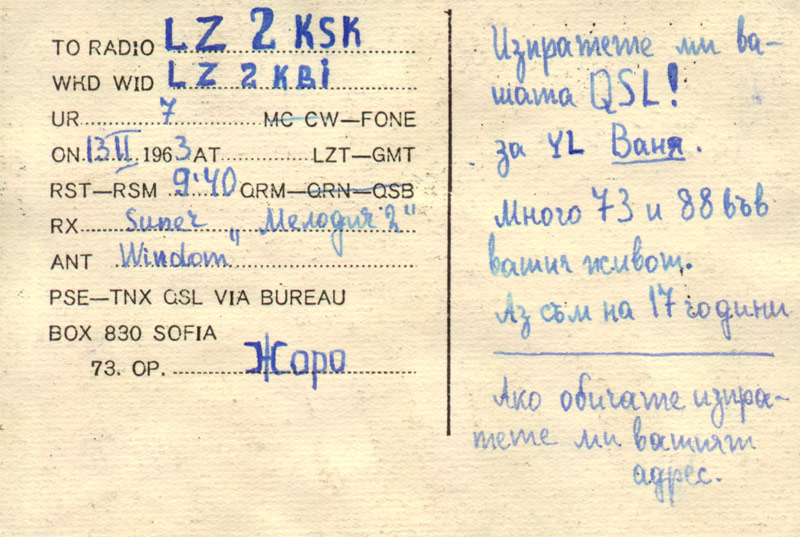 TO RADIO LZ 2 KSK
WKD WID LZ 2 KBI
UR 7 MC CW—FONE
ON 13 VI 1963 AT LZT—GMT
RST—RSM 9·40 QRM—QRN—QSB
RX Super „Мелодия 2"
ANT Windom
PSE—TNX QSL VIA BUREAU
BOX 830 SOFIA
73. OP. Жоро
Изпратете ми ва-
шата QSL!
за YL Ваня.
Много 73 и 88 във
вашия живот.
Аз съм на 17 години
Ако обичате изпра-
тете ми вашият
адрес.